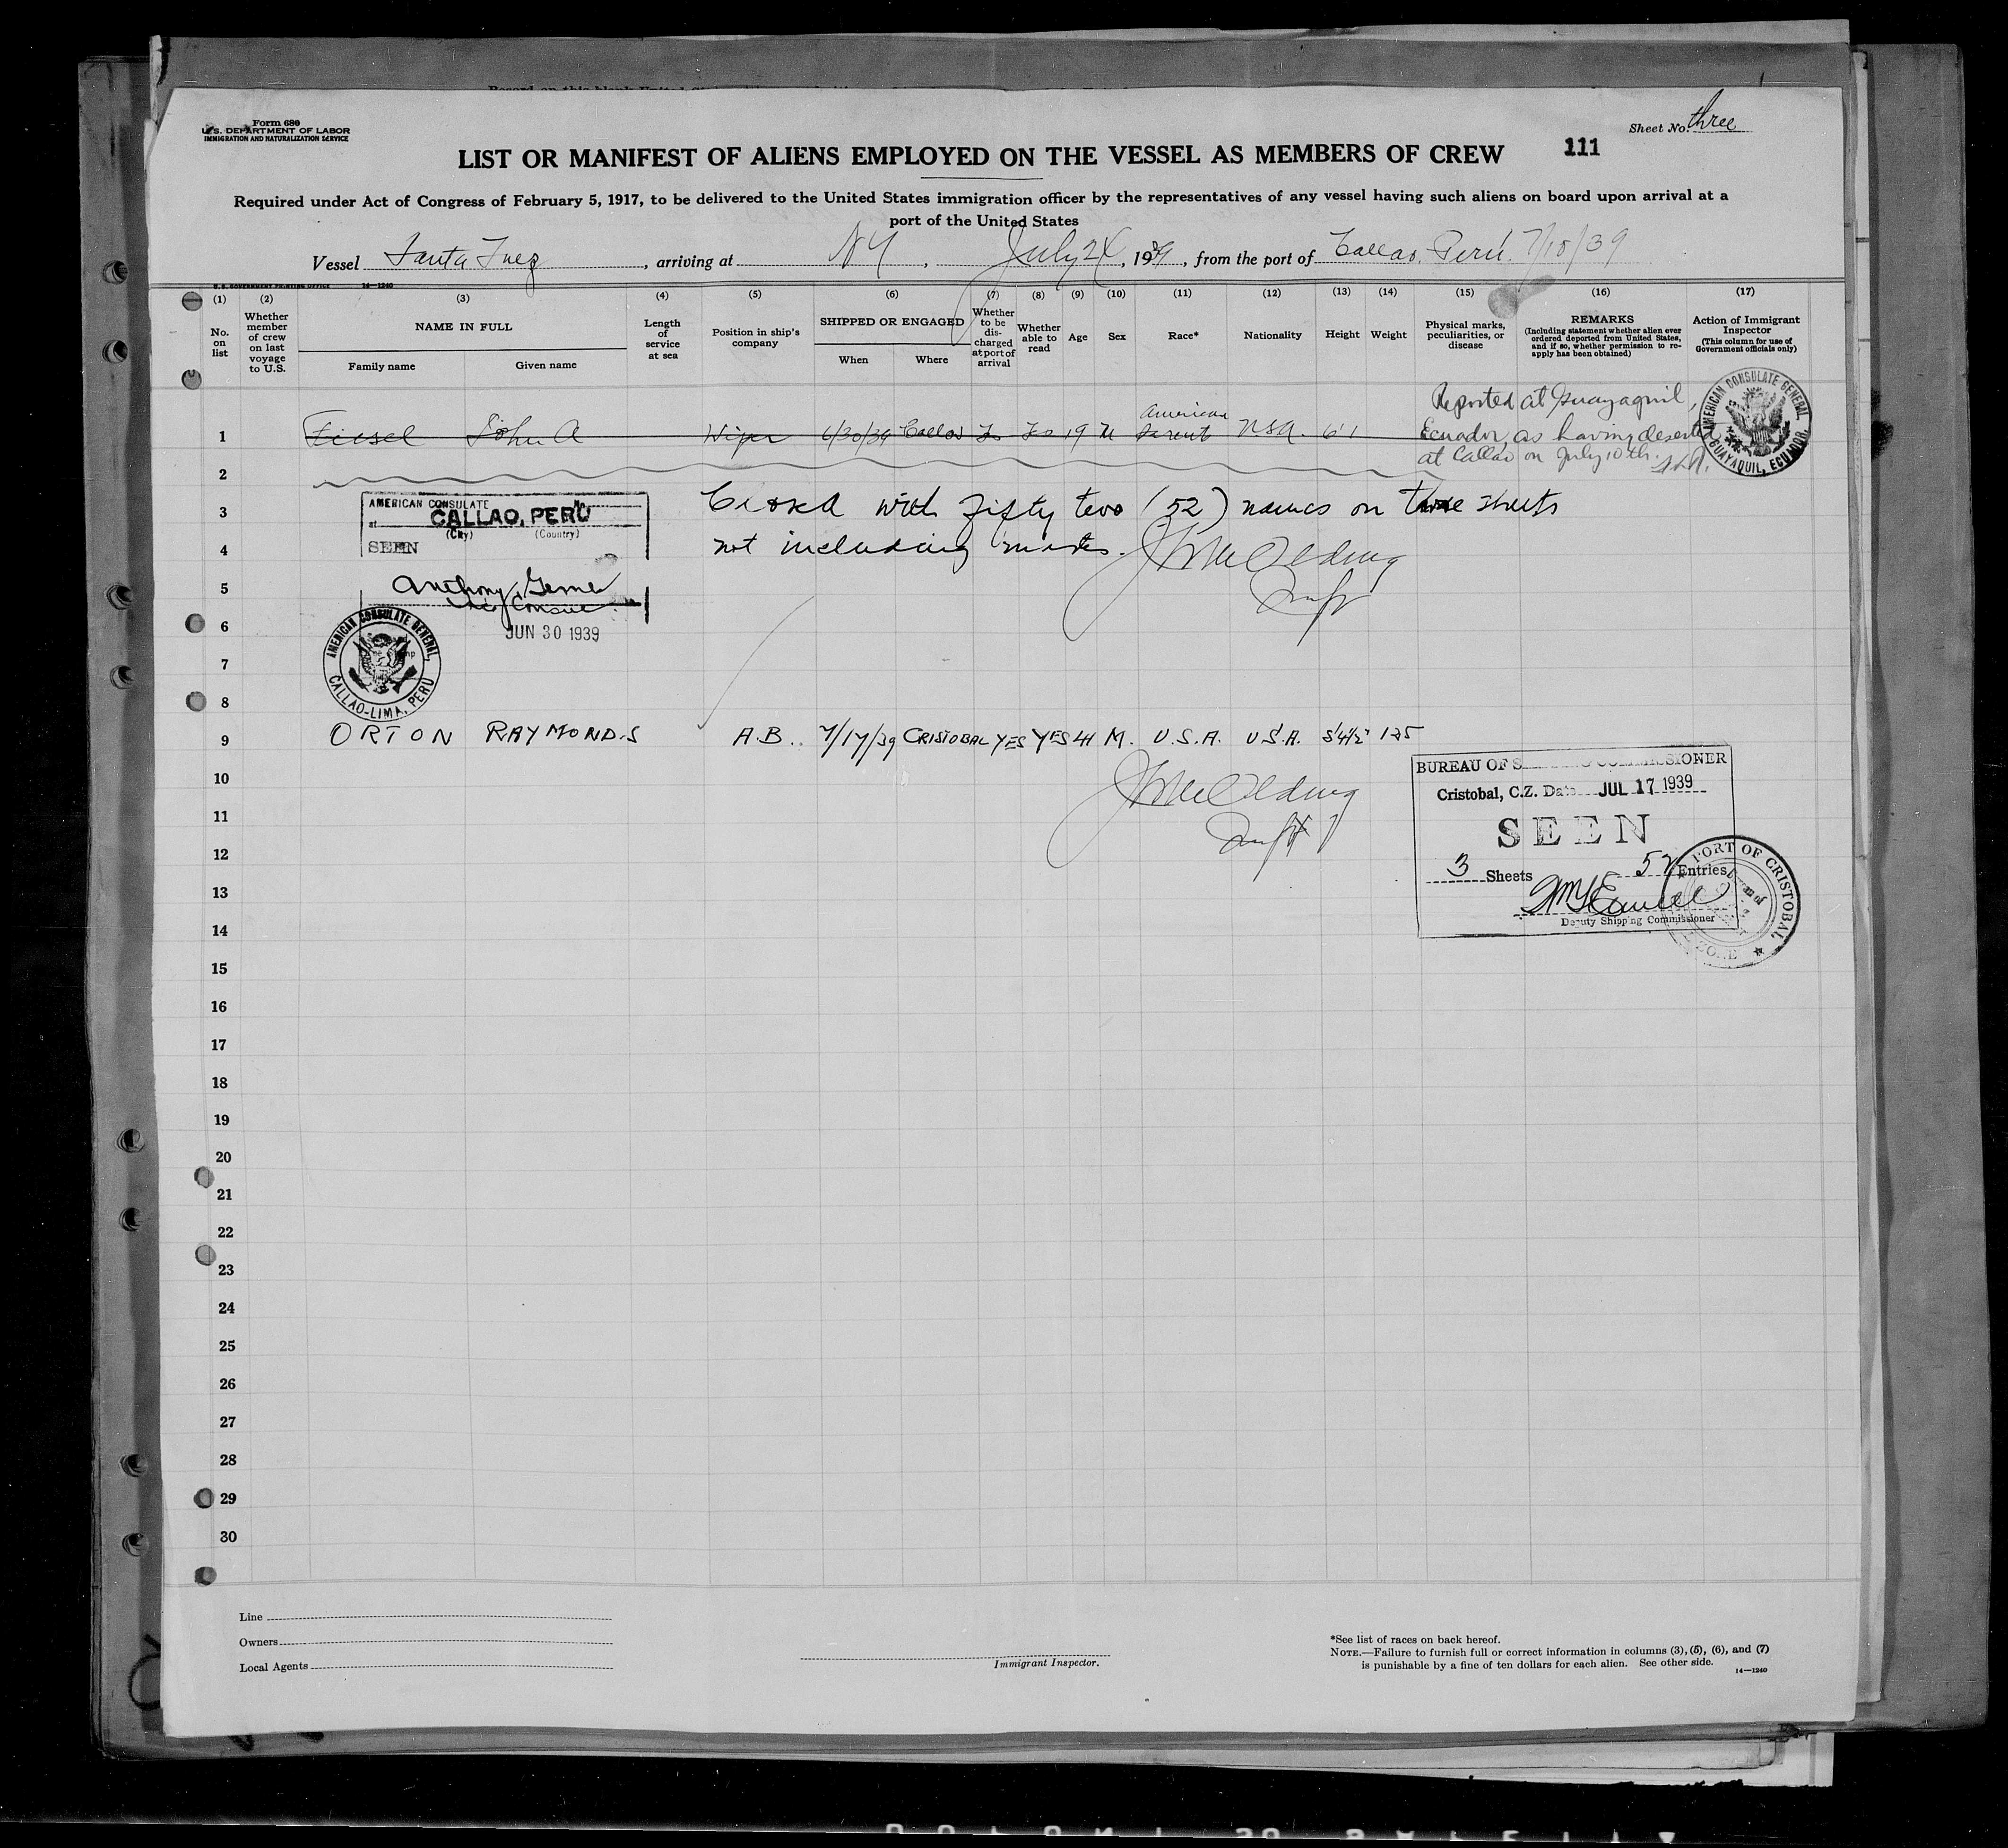 Form 680
U.S. DEPARTMENT OF LABOR
IMMIGRATION AND NATURALIZATION SERVICE
Sheet No. three
LIST OR MANIFEST OF ALIENS EMPLOYED ON THE VESSEL AS MEMBERS OF CREW
111
Required under Act of Congress of February 5, 1917, to be delivered to the United States immigration officer by the representatives of any vessel having such aliens on board upon arrival at a
port of the United States
Vessel Santa Inez, arriving at NY, July 24, 1939, from the port of Callao, Peru. 7/10/39
U. S. GOVERNMENT PRINTING OFFICE 14—1240
(1) (2) (3) (4) (5) (6) (7) (8) (9) (10) (11) (12) (13) (14) (15) (16) (17)
No. on list
Whether member of crew on last voyage to U.S.
NAME IN FULL
Family name
Given name
Length of service at sea
Position in ship's company
SHIPPED OR ENGAGED
When
Where
Whether to be discharged at port of arrival
Whether able to read
Age
Sex
Race*
Nationality
Height
Weight
Physical marks, peculiarities, or disease
REMARKS
(Including statement whether alien ever ordered deported from United States, and if so, whether permission to re-apply has been obtained)
Action of Immigrant Inspector
(This column for use of Government officials only)
1 John A Wiper 6/30/39 Callao 19 M American U.S.A. 6'1
Reported at Guayaquil,
Ecuador, as having deserted
at Callao on July 10th.
AMERICAN CONSULATE GENERAL
GUAYAQUIL, ECUADOR.
2
3 Closed with fifty two (52) names on three sheets
4 not including
AMERICAN CONSULATE
at CALLAO, PERU
(City) (Country)
SEEN
5 Anthony
Vice Consul
6 JUN 30 1939
AMERICAN CONSULATE GENERAL,
CALLAO-LIMA, PERU
7
8
9 ORTON RAYMOND.S A.B. 7/17/39 CRISTOBAL YES YES 41 M. U.S.A. U.S.A. 5'4½" 125
10
11
12
13
14
BUREAU OF S COMMISSIONER
Cristobal, C.Z. Date JUL 17 1939
SEEN
3 Sheets 52 Entries
Deputy Shipping Commissioner
PORT OF CRISTOBAL
ZONE
15
16
17
18
19
20
21
22
23
24
25
26
27
28
29
30
Line
Owners
Local Agents
Immigrant Inspector.
*See list of races on back hereof.
NOTE.—Failure to furnish full or correct information in columns (3), (5), (6), and (7)
is punishable by a fine of ten dollars for each alien. See other side.
14—1240